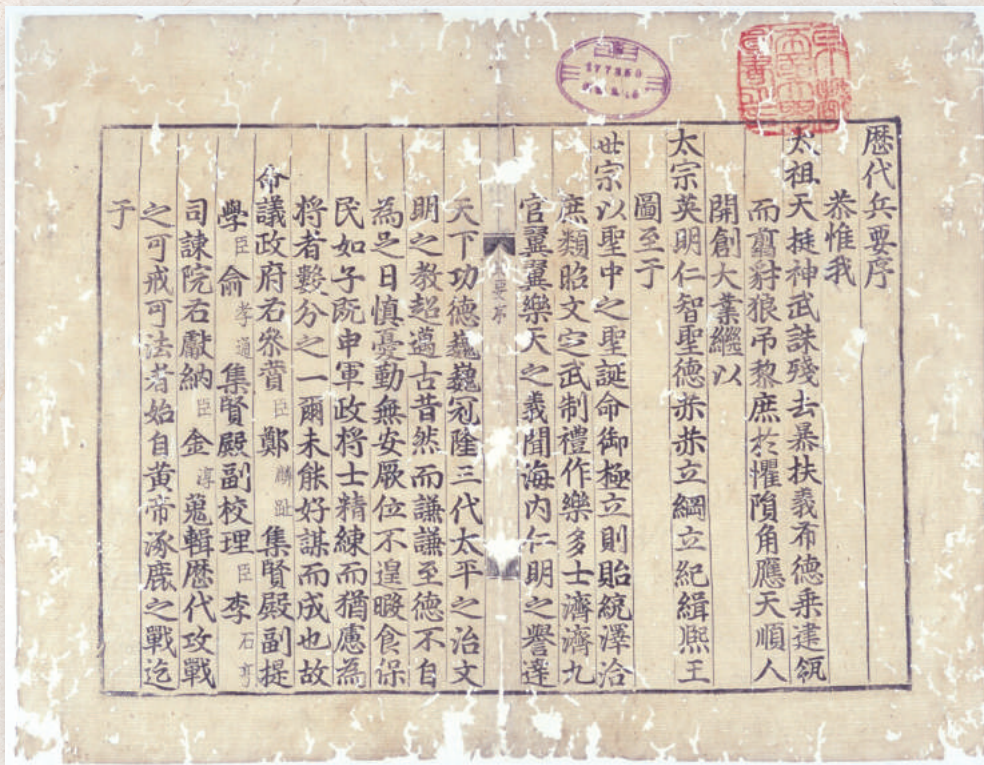 歷代兵要序
恭惟我
太祖天挺神武誅殘去暴扶義布德乘建瓴
而翦豺狼吊黎庶於懼隕角應天順人
開創大業繼以
太宗英明仁智聖德赤赤立綱立紀緝熙王
圖至于
世宗以聖中之聖誕命御極立則貽統澤洽
庶類昭文定武制禮作樂多士濟濟九
官翼翼樂天之義聞海內仁明之譽達
天下功德巍巍冠隆三代太平之治文
明之教超邁古昔然而謙謙至德不自
為足日慎憂動無安厥位不遑暇食保
民如子既申軍政將士精練而猶慮為
將者數分之一爾未能好謀而成也故
命議政府右參贊臣鄭麟趾集賢殿副提
學臣俞孝通集賢殿副校理臣李石亨
司諫院右獻納臣金淳蒐輯歷代攻戰
之可戒可法者始自黃帝涿鹿之戰迄
于
177250